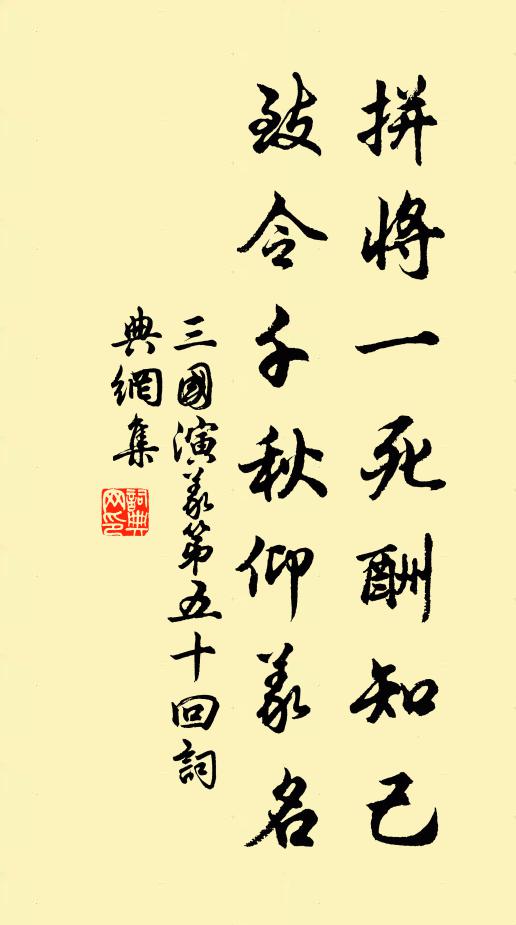 拼將一死酬知己
致令千秋仰義名
三國演義第五十回詞
典網集
詞典網印